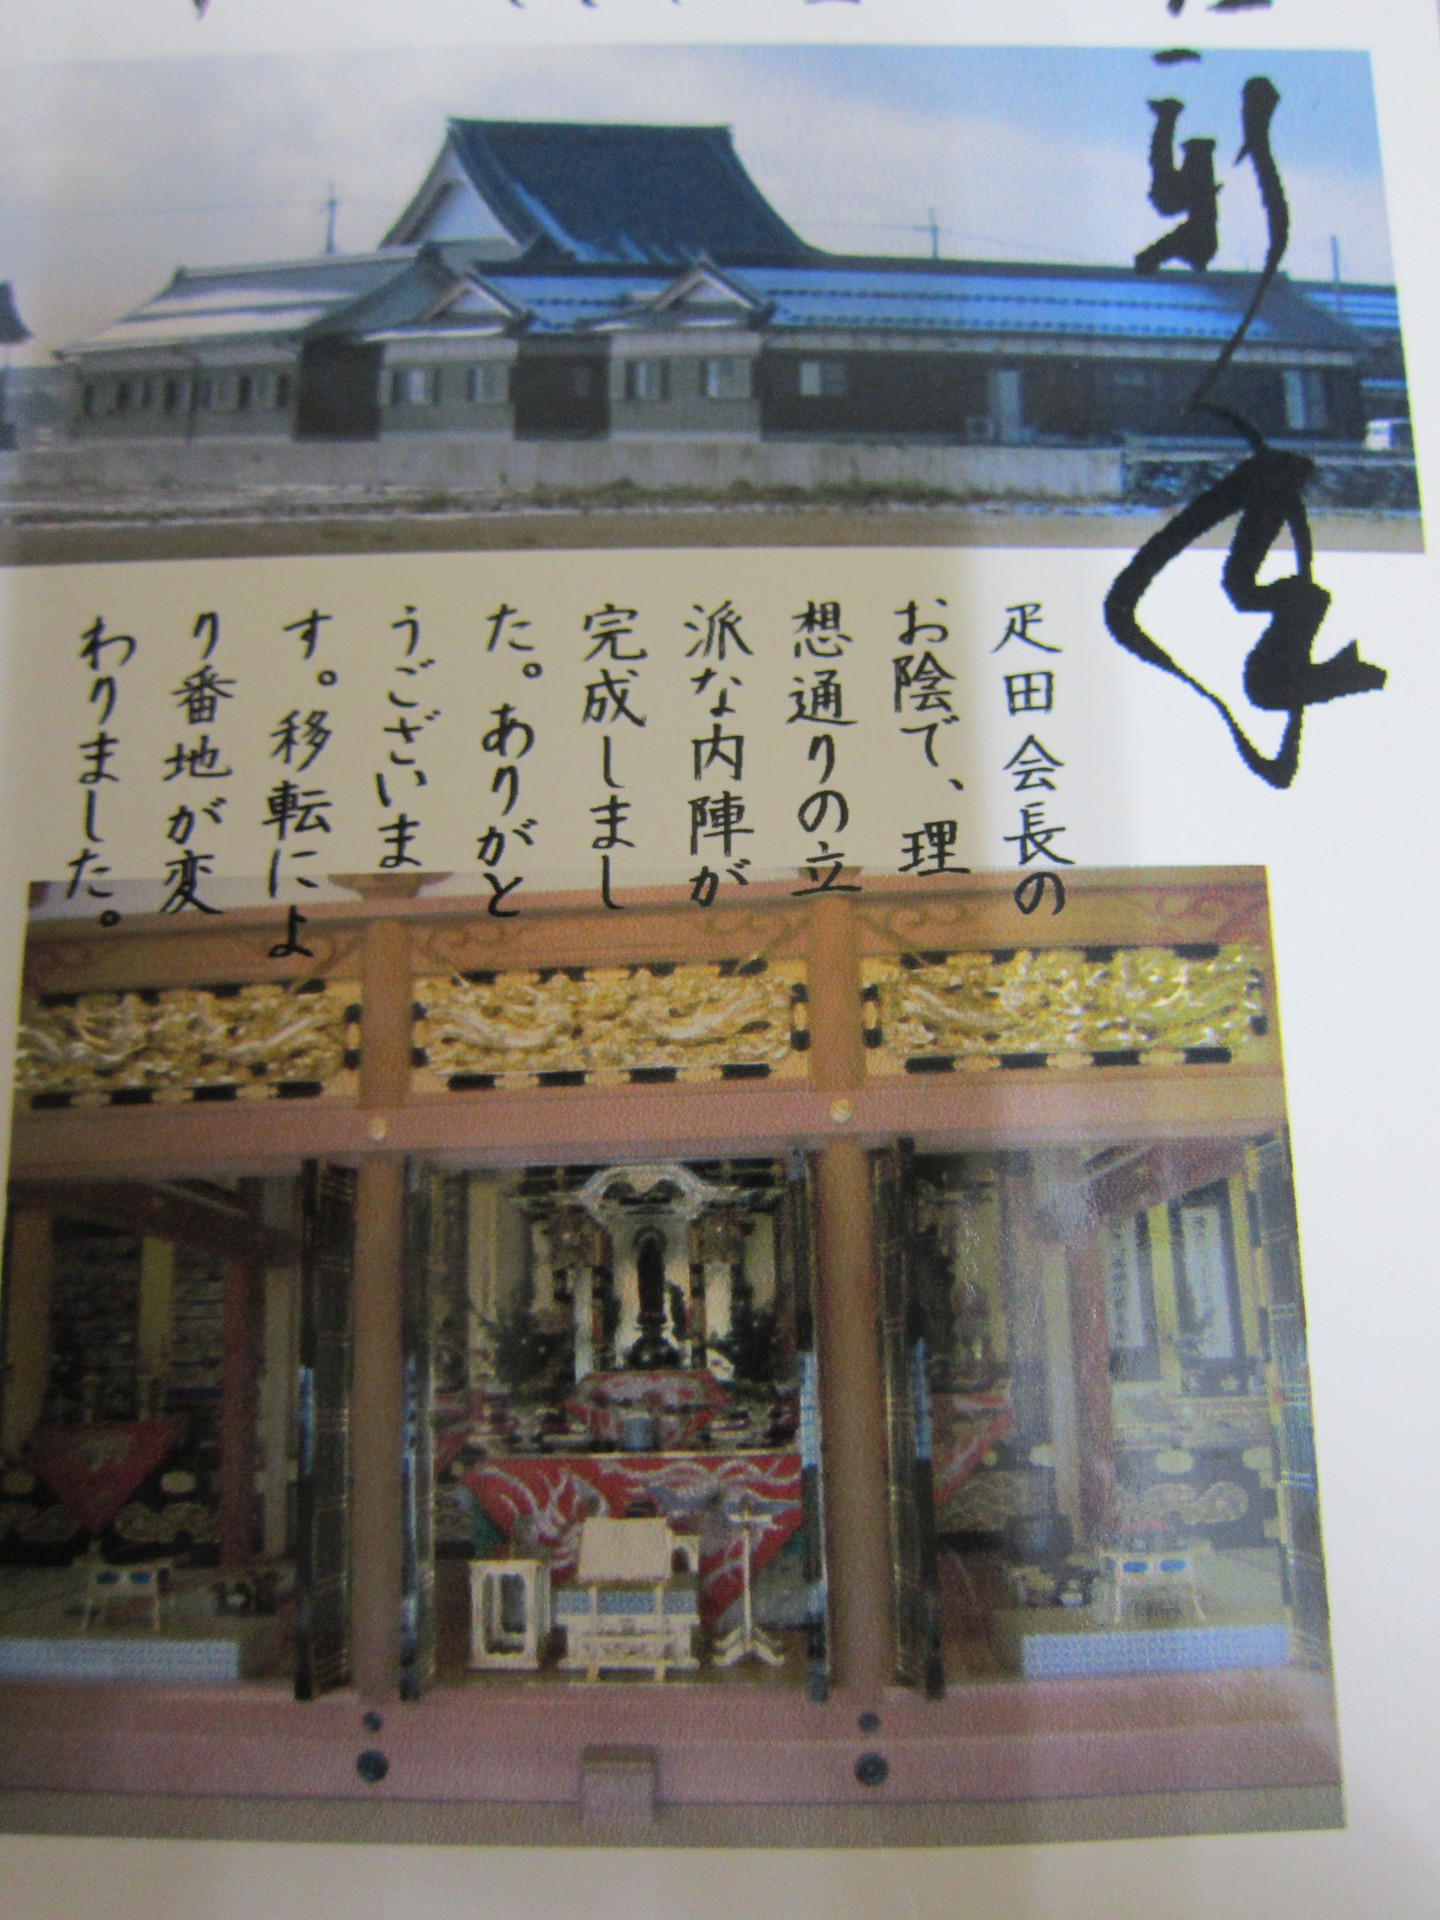 新年
疋田会長の
お陰で、理
想通りの立
派な内陣が
完成しまし
た。ありがと
うございま
す。移転によ
り番地が変
わりました。